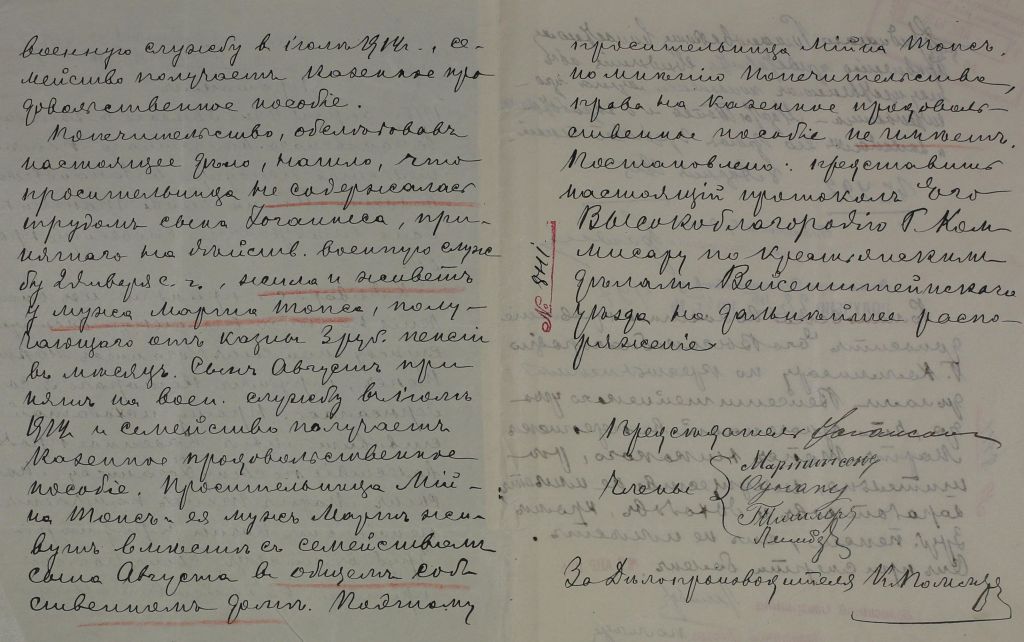 военную службу в iюлѣ 1914г., се-
мейство получаетъ казенное про
довольственное пособiе.
Попечительство, обслѣдовавъ
настоящее дѣло, нашло, что
просительница не содержалась
трудомъ сына Iоганнеса, при-
нятаго на дѣйств. военную служ
бу 2 Января с. г., жила и живетъ
у мужа Марта Топса, полу-
чающаго отъ казны 3 руб. пенсiи
въ мѣсяцъ. Сынъ Августъ при
нятъ на воен. службу въ iюлѣ
1914г. и семейство получаетъ
казенное продовольственное
пособiе. Просительница Мiй-
на Топсъ и ея мужъ Мартъ жи-
вутъ вмѣстѣ съ семействомъ
сына Августа въ общемъ соб
ственномъ домѣ. Поэтому
просительница Мiйна Топсъ,
по мнѣнiю Попечительства,
права на казенное продоволь-
ственное пособiе не имѣетъ.
Постановлено: представить
настоящiй протоколъ Его
Высокоблагородiю Г. Ком
мисару по крестьянскимъ
дѣламъ Вейсенштейнскаго
уѣзда на дальнѣйшее распо-
ряженiе.
№ 841
Предсѣдатель
Члены
За Дѣлопроизводителя К.